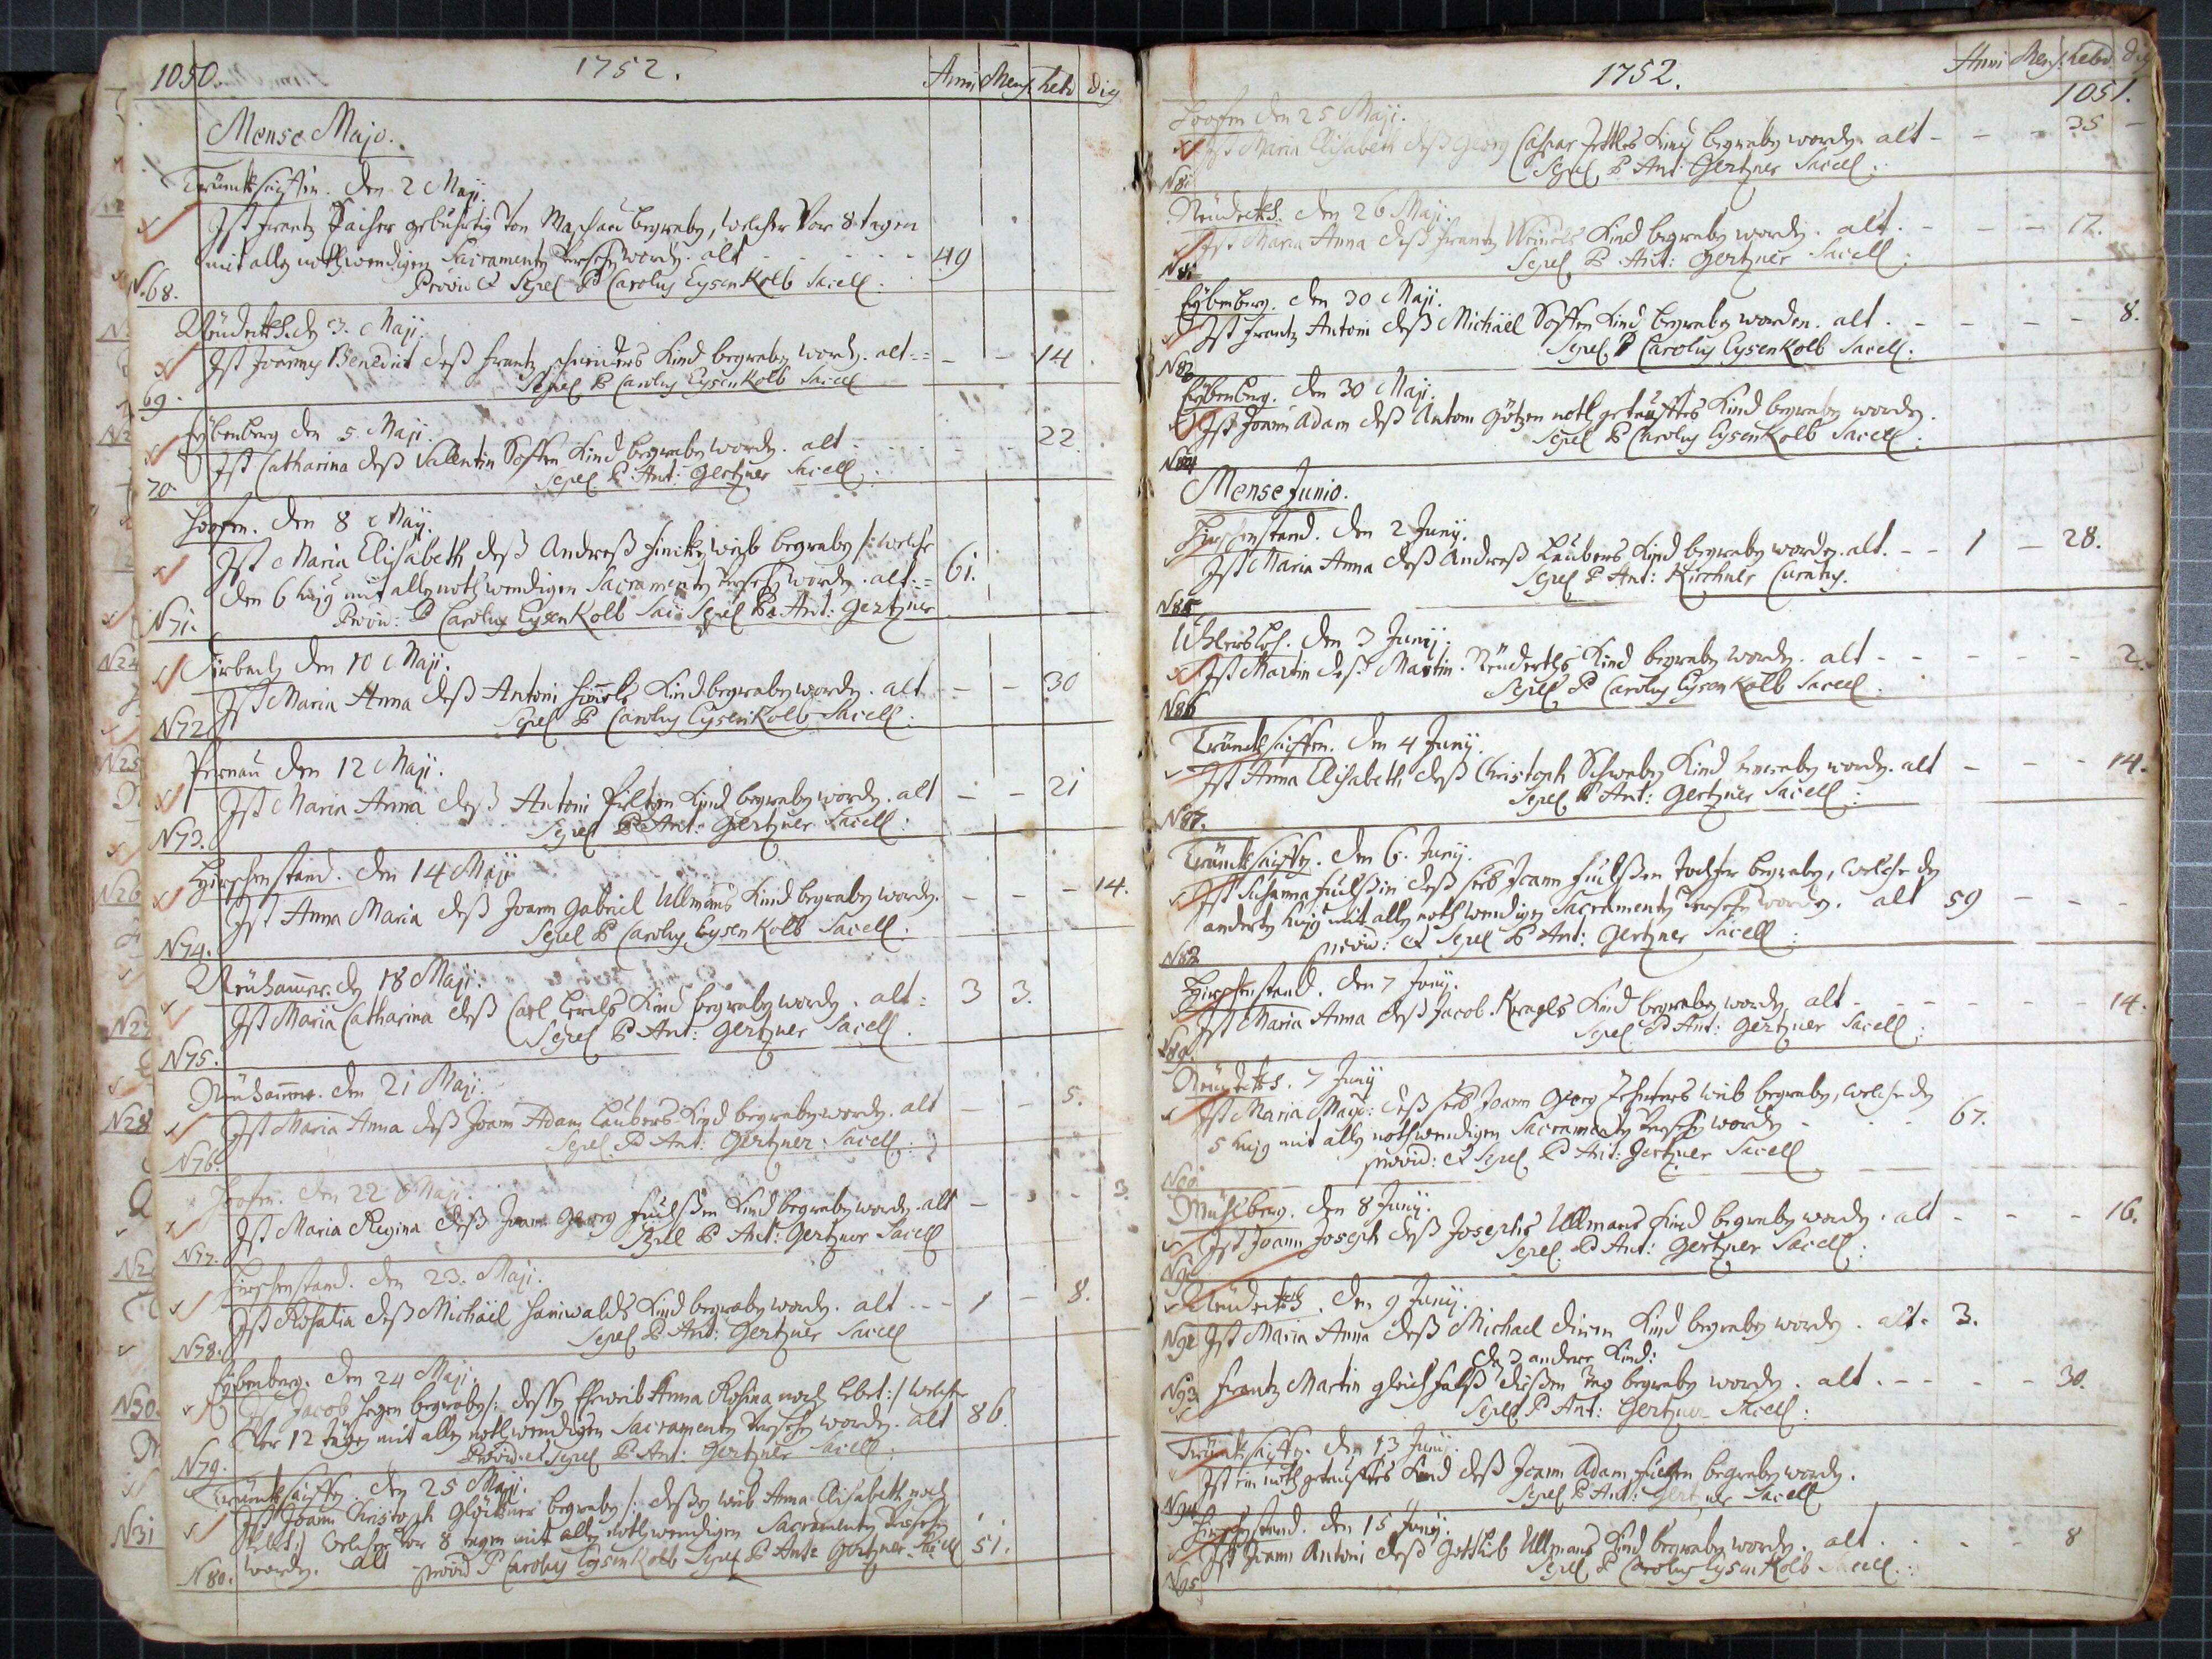 1050. 1752. Anni Mens. hebd dieß
Mense Majo.
Trünckseiffen. den 2 Maji.
Ist Frantz gebührtig von begraben, welcher vor 8 tagen
mit allen nothwendigen Sacramenten versehen worden. alt - - - 49
N.68. Provi: et Sepel P Carolus Eysenkolb Sacell:
Neudeckh. den 3. Maji.
Ist Joannes Benedict deß Frantz Kind begraben worden. alt - - - 14
69. Sepel P Carolus Eysenkolb Sacell
Eybenberg den 5. Maji.
Ist Catharina deß Valentin Kind begraben worden. alt - - - 22
70. Sepel P Ant: Gertzner Sacell:
Hoofen. den 8 Maji.
Ist Maria Elisabeth deß Andreß weib begraben /: welche
den 6 huj9 mit allen nothwendigen Sacramenten versehen worden. alt = 61.
N71. Provi: P Carolus Eysenkolb Sac: Sepel P Ant: Gertzner
den 10 Maji.
Ist Maria Anna deß Antoni Kind begraben worden. alt - - 30
N72 Sepel P Carolus Eysenkolb Sacell:
den 12 Maji.
Ist Maria Anna deß Antoni Kind begraben worden. alt - - 21
N73. Sepel P Ant: Gertzner Sacell:
Hirschenstand. den 14 Maji
Ist Anna Maria deß Joann Gabriel Ullmans Kind begraben worden. - - - 14.
N74. Sepel P Carolus Eysenkolb Sacell:
Neuhammer. den 18 Maji.
Ist Maria Catharina deß Carl Kind begraben worden. alt = 3 3.
N75. Sepel P Ant: Gertzner Sacell.
Neuhammer. den 21 Maji.
Ist Maria Anna deß Joann Adam Laubers Kind begraben worden. alt - - 5.
N76. Sepel. P Ant: Gertzner Sacell:
Hoofen. den 22 Maji.
Ist Maria Regina deß Joann Georg Kind begraben worden. alt - - - 3.
N77. Sepell P Ant: Gertzner Sacell
Hirschenstand. den 23. Maji.
Ist Rosalia deß Michäel Kind begraben worden. alt - - - 1 - 8.
N78. Sepel P Ant: Gertzner Sacell
Eybenberg. den 24 Maji.
Ist Jacob begraben /: dessen Eheweib Anna Rosina noch lebet :/ welcher
vor 12 tagen mit allen nothwendigen Sacramenten versehen worden. alt 86.
N79. Provid: et Sepel P Ant: Gertzner Sacell:
Trünckseiffen. den 25 Maji.
Ist Joann Christoph Glöckner begraben /: deßen weib Anna Elisabeth noch
lebet :/ welcher vor 8 tagen mit allen nothwendigen Sacramenten versehen
N80. worden. alt provid P Carolus Eysenkolb Sepel P Ant: Gertzner Sacell 51.
1752. Anni Mens. hebd dieß
1051.
Hoofen den 25 Maji.
Ist Maria Elisabeth deß Georg Caspar Kind begraben worden. alt - - - 35 -
N81 Sepel P Ant: Gertzner Sacell:
Neudeckh. den 26 Maji.
Ist Maria Anna deß Frantz Kind begraben worden. alt. - - - 12.
N82 Sepel P Ant: Gertzner Sacell.
Eybenberg. den 30 Maji.
Ist Frantz Antoni deß Michäel Kind begraben worden. alt. - - - - 8.
N83 Sepel P Carolus Eysenkolb Sacell.
Eybenberg. den 30 Maji.
Ist Joann Adam deß Antoni noth getaufftes Kind begraben worden.
N84 Sepel P Carolus Eysenkolb Sacell:
Mense Junio.
Hirschenstand. den 2 Junij.
Ist Maria Anna deß Andreß Laubers Kind begraben worden. alt. - - 1 - 28.
N85 Sepel P Ant: Kirchner Curatus.
den 3 Junij.
Ist Martin deß Martin Kind begraben worden. alt - - - - - 2.
N86 Sepel P Carolus Eysenkolb Sacell.
Trünckseiffen. den 4 Junij.
Ist Anna Elisabeth deß Christoph Schwaben Kind begraben worden. alt - - - 14.
N87. Sepel P Ant: Gertzner Sacell:
Trünckseiffen. den 6. Junij.
Ist Susanna deß Joann Tochter begraben, welche den
andern huj9 mit allen nothwendigen Sacramenten versehen worden. alt 59 - - -
N88 provid: et Sepel P Ant: Gertzner Sacell:
Hirschenstand. den 7 Junij.
Ist Maria Anna deß Jacob Kind begraben worden, alt - - - - - 14.
N89. Sepel P Ant: Gertzner Sacell:
Neudeckh. 7 Junij
Ist Maria Magd: deß Joann Georg weib begraben, welche den
5 huj9 mit allen nothwendigen Sacramenten versehen worden - - - 67.
N90. provid: et Sepel P Ant: Gertzner Sacell
Mühlberg. den 8 Junij.
Ist Joann Joseph deß Josephs Ullmans Kind begraben worden. alt - - - 16.
N91 Sepel P Ant: Gertzner Sacell:
Neudeckh. den 9 Junij.
N92 Ist Maria Anna deß Michael Kind begraben worden. alt. 3.
andere Kind:
N93 Frantz Martin gleich falß dießen Tag begraben worden. alt. - - - - 30.
Sepel P Ant: Gertzner Sacell:
Trünckseiffen. den 13 Junij.
Ist ein noth getaufftes Kind deß Joann Adam begraben worden.
N94 Sepel P Ant: Gertzner Sacell
Hirschenstand. den 15 Junij.
Ist Joann Antoni deß Gottlieb Ullmans Kind begraben worden. alt. - - - 8
N95 Sepel P Carolus Eysenkolb Sacell.